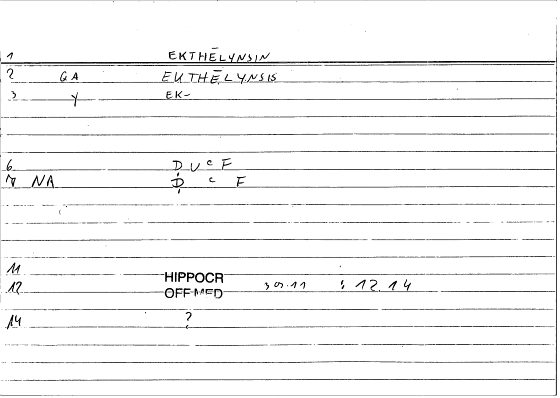 1 EKTHĒLYNSIN
2 GA EUTHĒLYNSIS
3 Y EK-
6 D U C F
7 NA D C F
11
12 HIPPOCR OFF MED : 12.14
14 ?